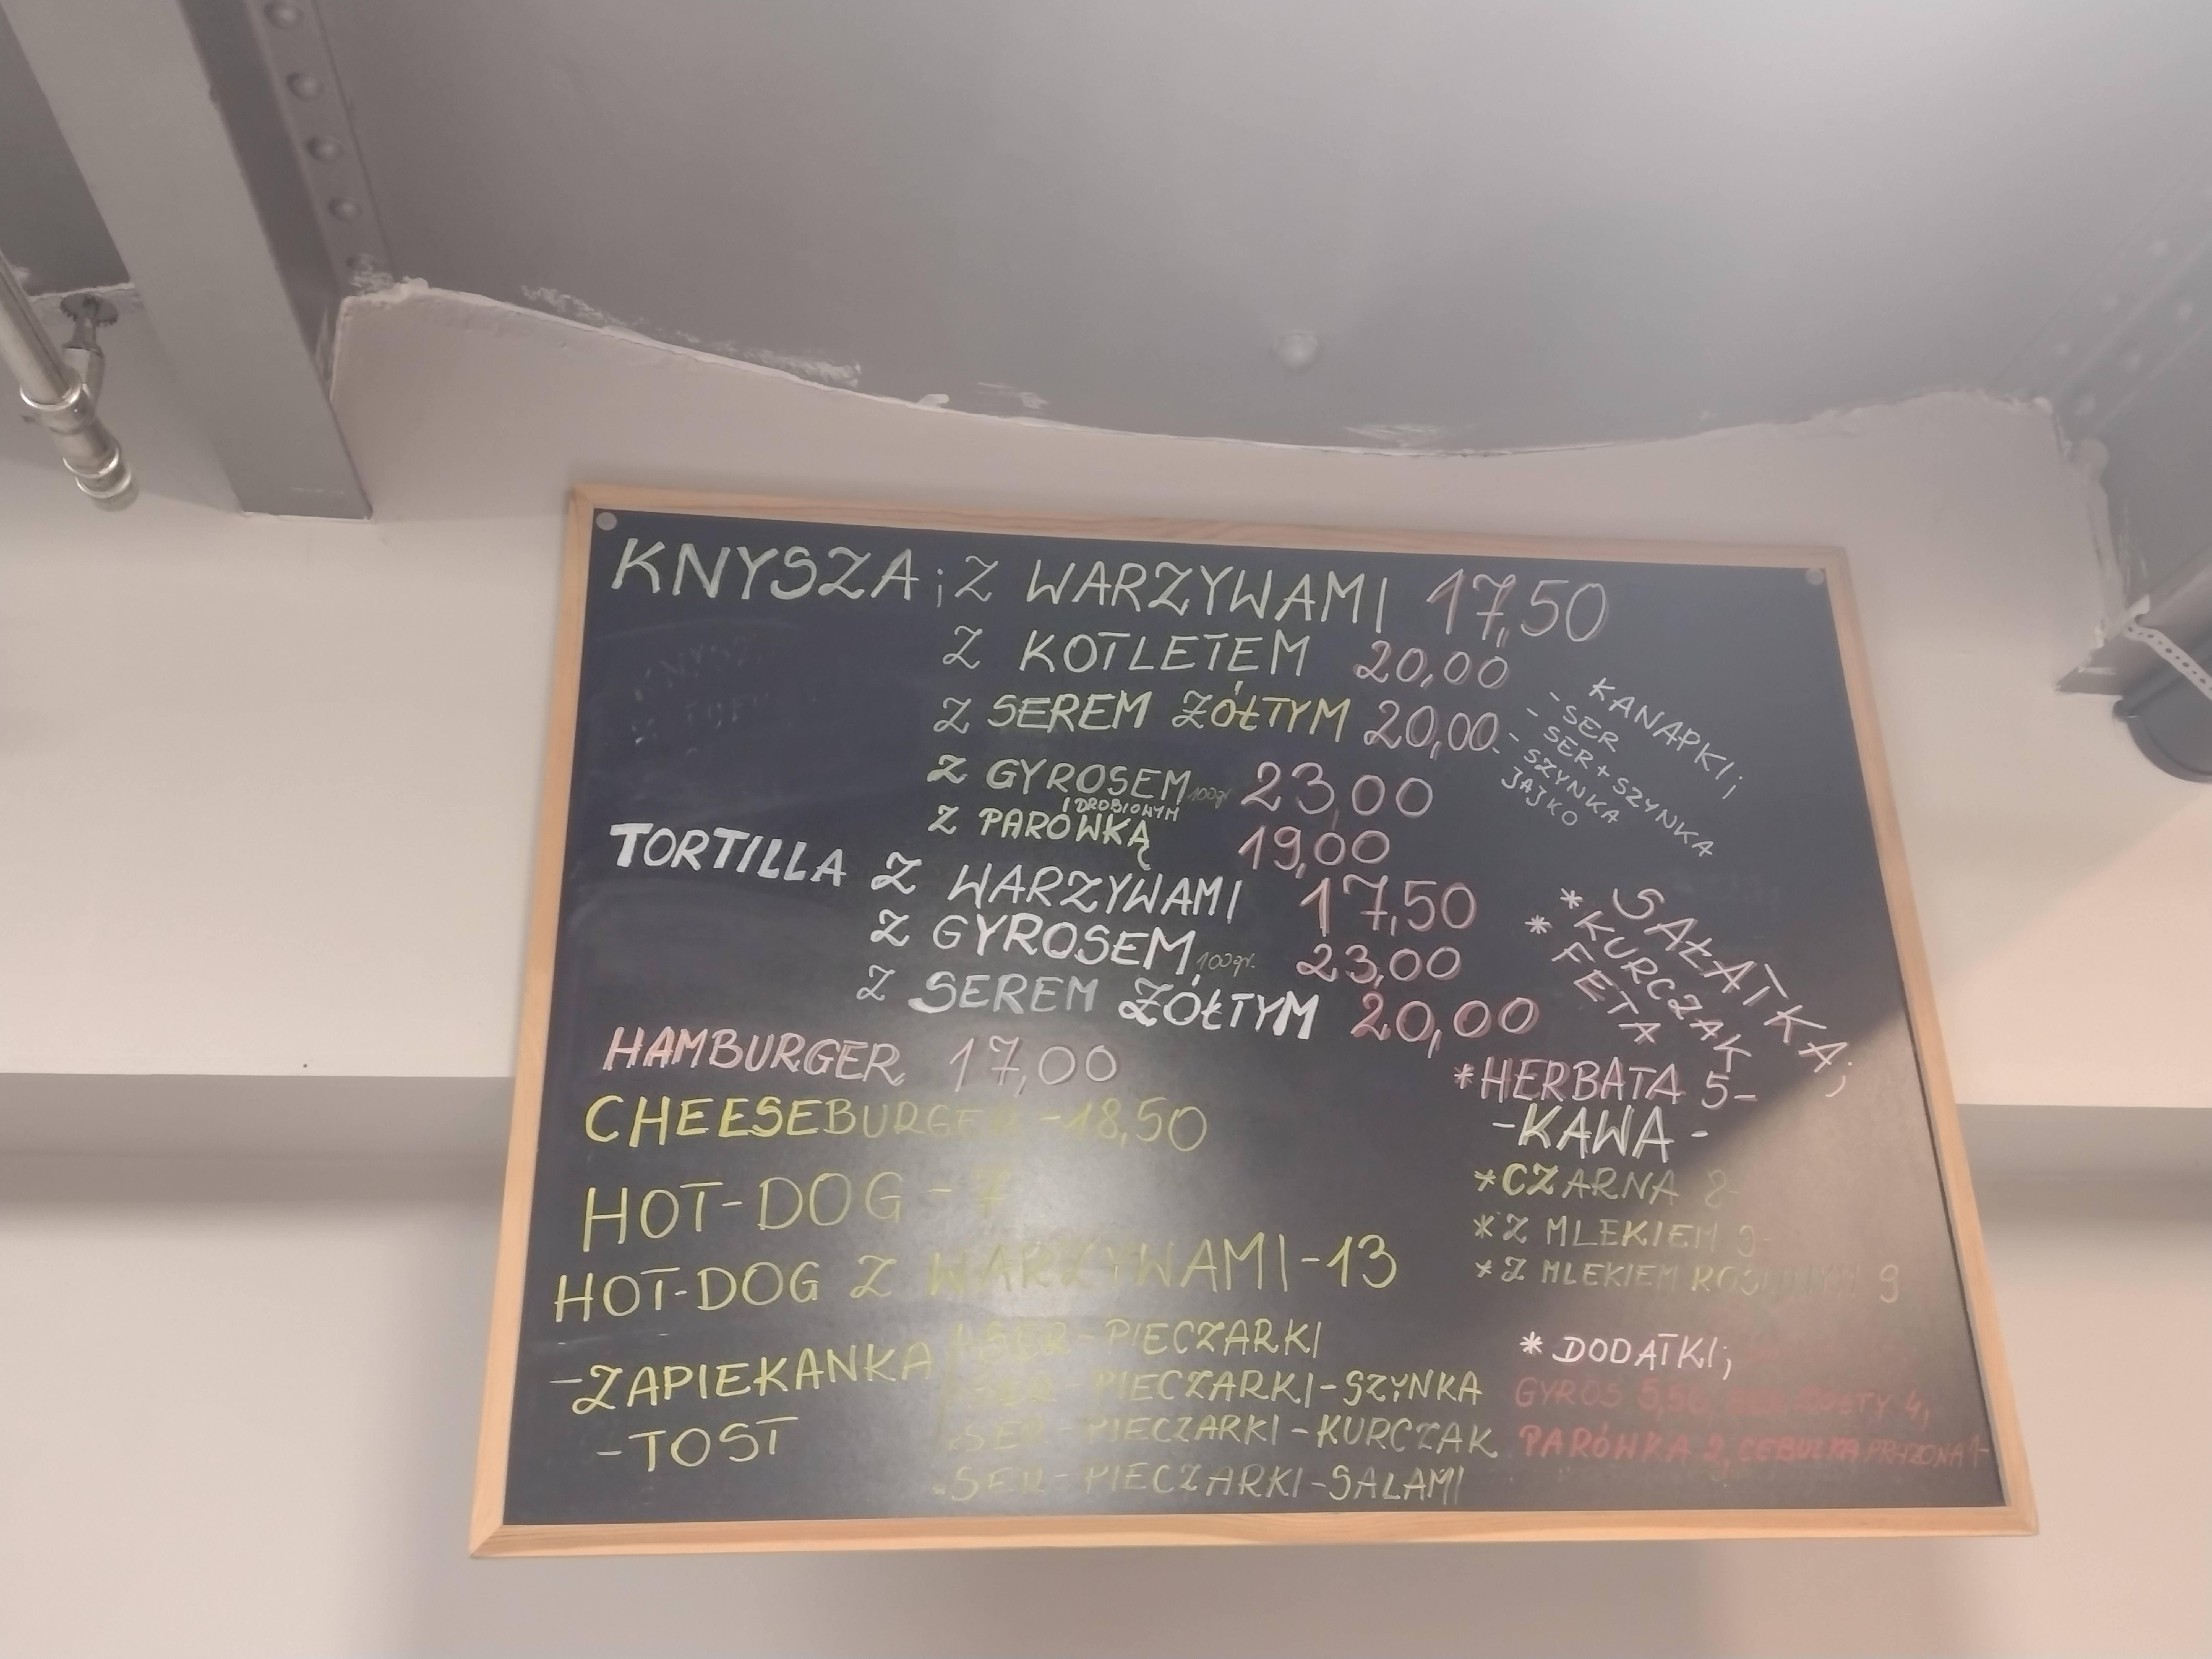 KNYSZA; Z WARZYWAMI 17,50
Z KOTLETEM 20,00
Z SEREM ŻÓŁTYM 20,00
Z GYROSEM 100gr 23,00
I DROBIOWYM
Z PARÓWKĄ 19,00
TORTILLA Z WARZYWAMI 17,50
Z GYROSEM 100gr. 23,00
Z SEREM ŻÓŁTYM 20,00
HAMBURGER 17,00
CHEESEBURGER - 18,50
HOT-DOG - 7
HOT-DOG Z WARZYWAMI - 13
- ZAPIEKANKA
- TOST
SER - PIECZARKI
SER - PIECZARKI - SZYNKA
SER - PIECZARKI - KURCZAK
SER - PIECZARKI - SALAMI
KANAPKI;
- SER
- SER + SZYNKA
- SZYNKA
- JAJKO
SAŁATKA;
* KURCZAK
* FETA
* HERBATA 5-
- KAWA -
* CZARNA 8-
* Z MLEKIEM 9-
* Z MLEKIEM 9
* DODATKI;
GYROS 5,50, 4,
PARÓWKA 2, CEBULKA PRAŻONA 1-